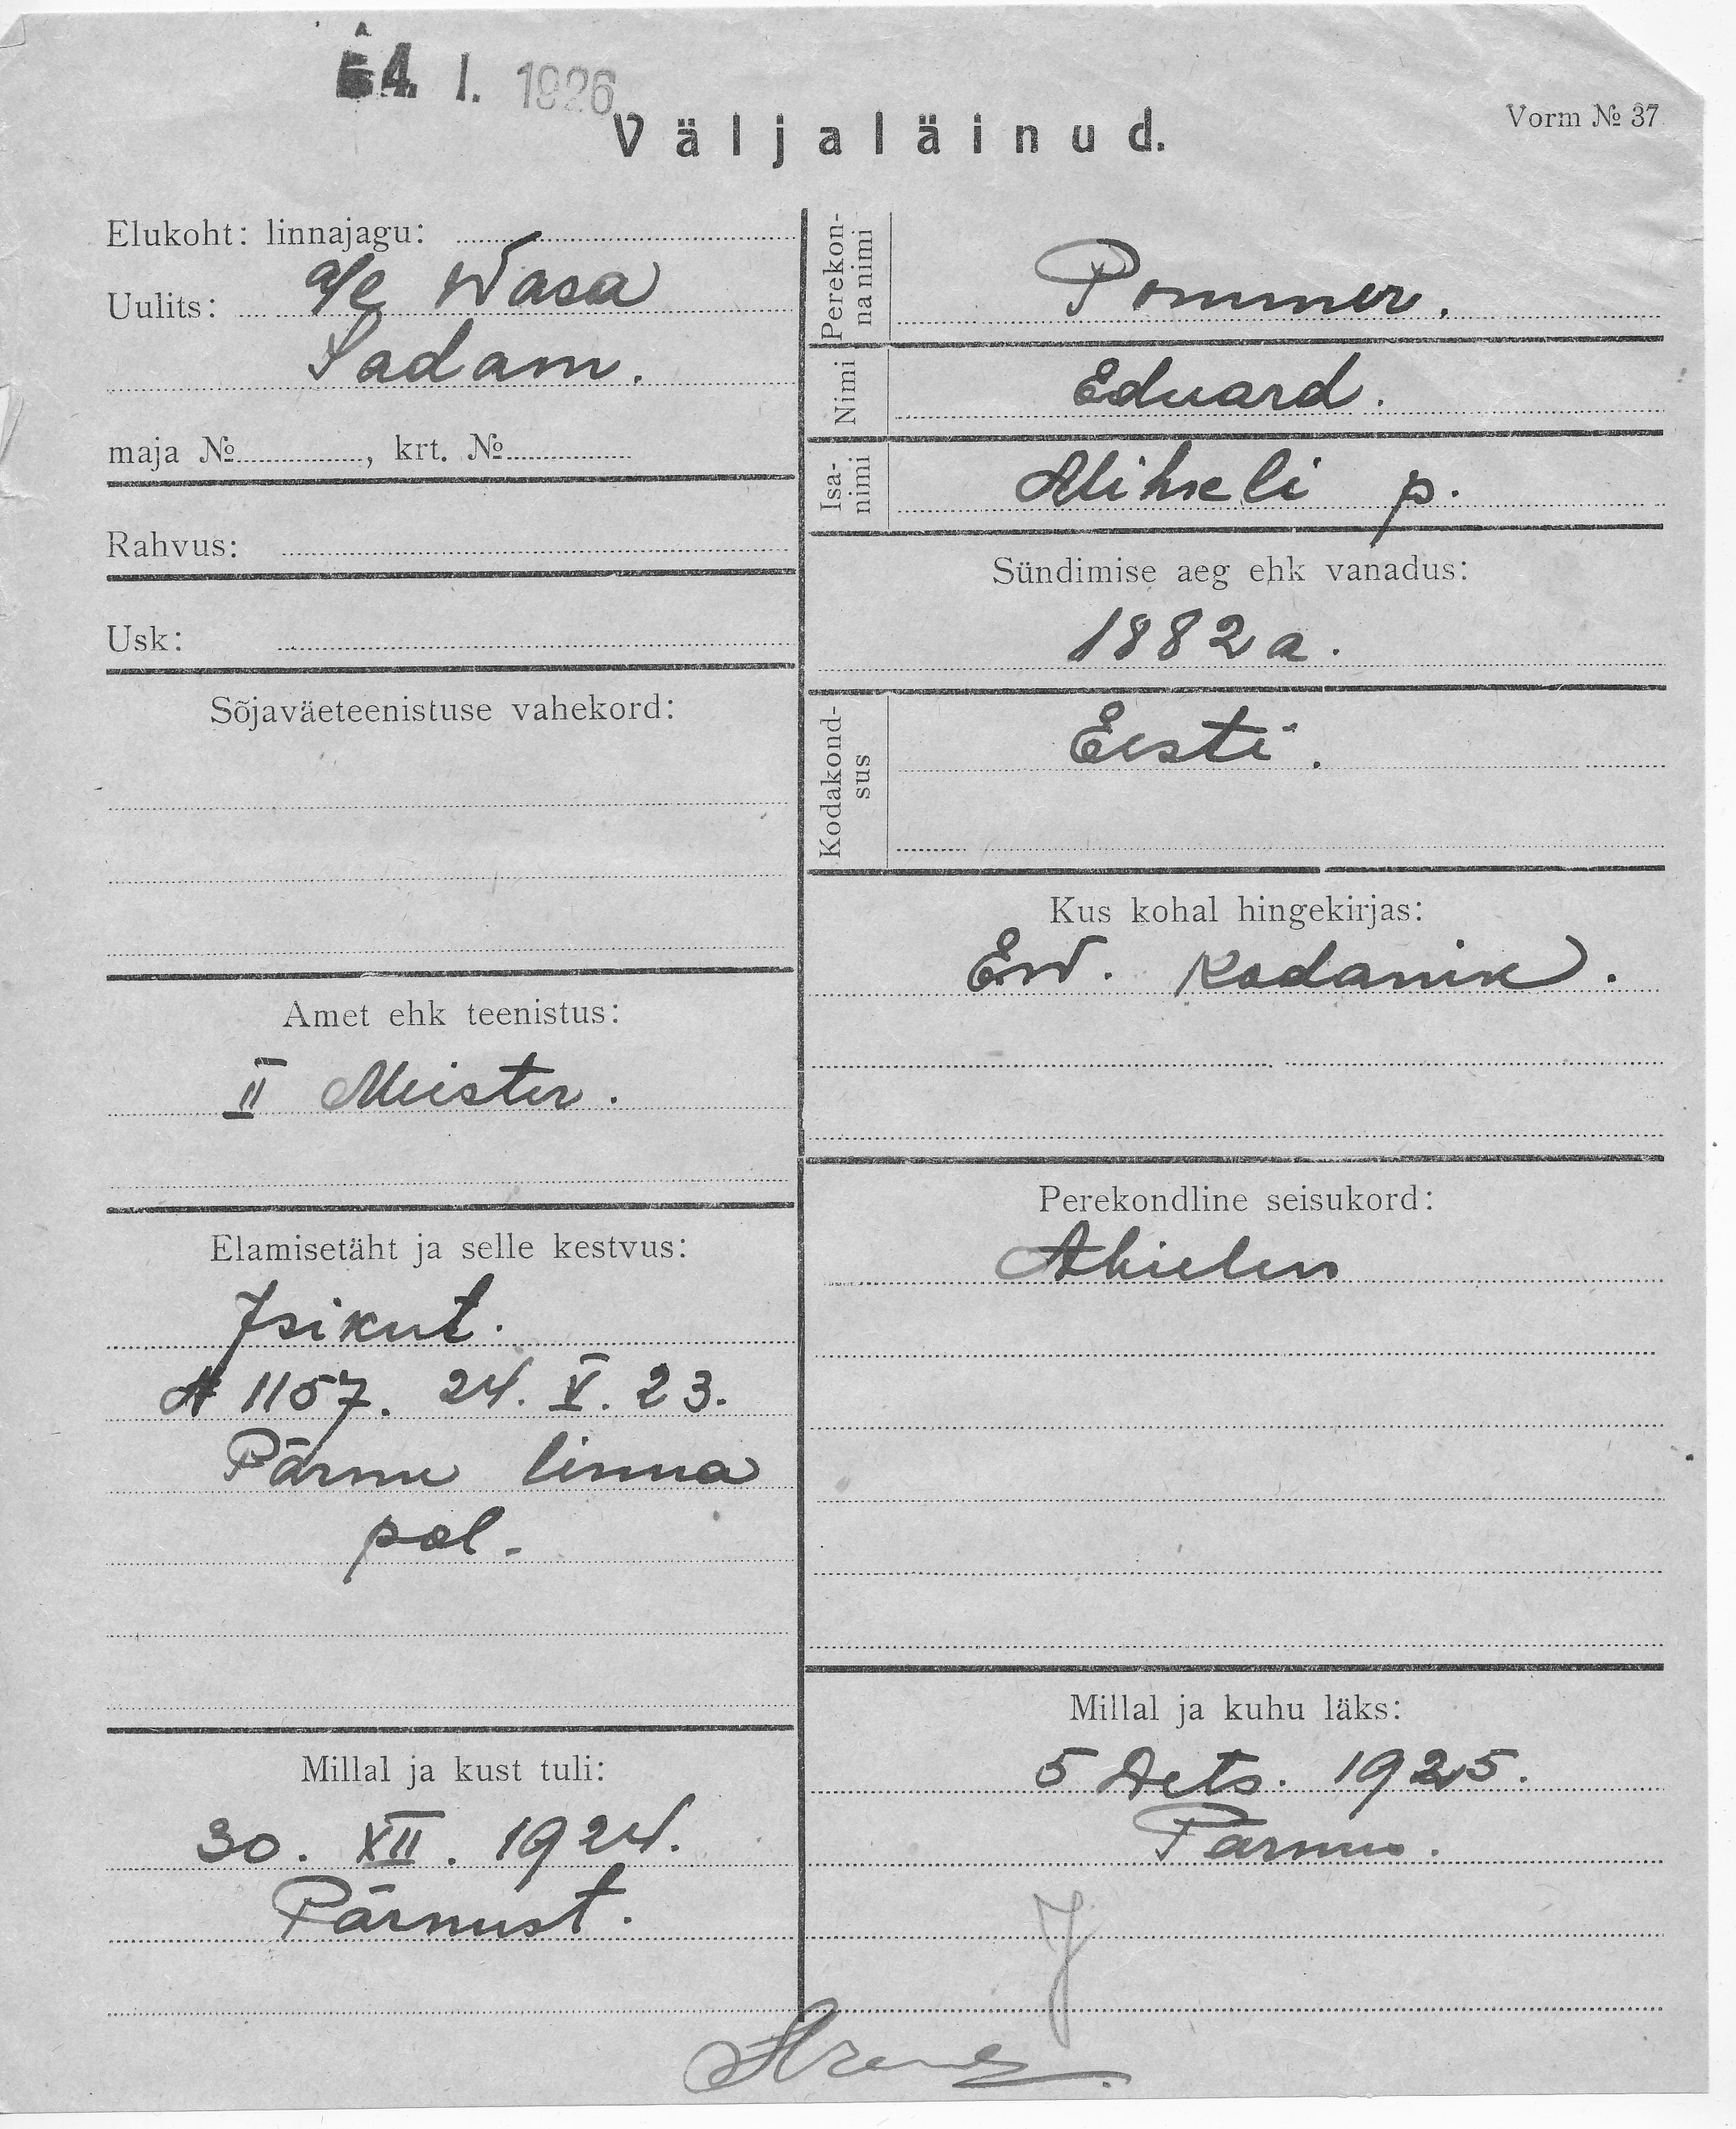 4. I. 1926
Väljaläinud.
Vorm № 37
Elukoht: linnajagu:
Uulits: a/l Wasa
Sadam.
maja № , krt. №
Rahvus:
Usk:
Sõjaväeteenistuse vahekord:
Amet ehk teenistus:
II Meister.
Elamisetäht ja selle kestvus:
Isikut.
№ 1157. 24. V. 23.
Pärnu linna
pol.
Millal ja kust tuli:
30. XII. 1924.
Pärnust.
Perekonna nimi
Pommer.
Nimi
Eduard.
Isanimi
Mihkli p.
Sündimise aeg ehk vanadus:
1882 a.
Kodakondsus
Eesti.
Kus kohal hingekirjas:
Ew. Kodanik.
Perekondline seisukord:
Abielus
Millal ja kuhu läks:
5 Dets. 1925.
Pärnu.